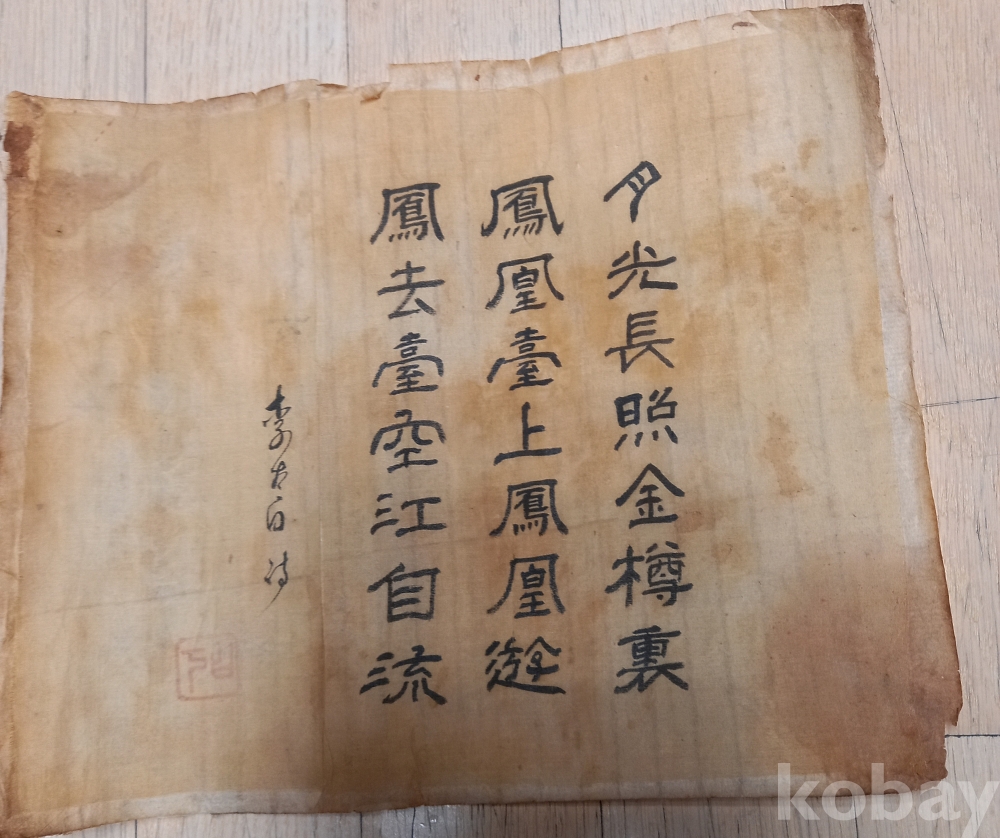 月光長照金樽裏
鳳凰臺上鳳凰遊
鳳去臺空江自流
李太白詩
kobay